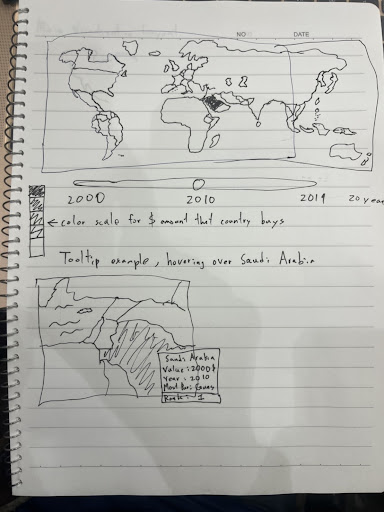 NO
DATE
2000 2010 2019 20 years
← color scale for $ amount that country buys
Tooltip example, hovering over Saudi Arabia
Saudi Arabia
Value : 2000$
Year : 2010
Rank : 1